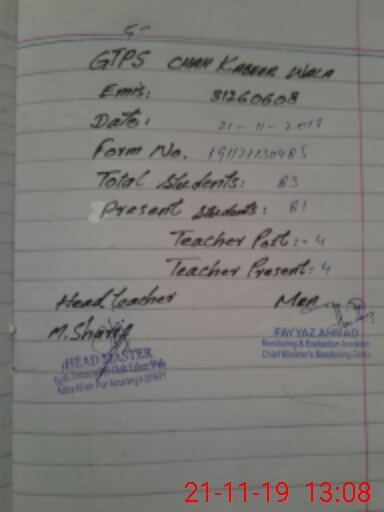 GTPS CHAH KABEER WALA
Emis: 31260608
Date: 21-11-2019
Form No.
Total Students: 83
Present Students: 81
Teacher Post:- 4
Teacher Present:- 4
Head teacher
Mea
M. Sharif
FAYYAZ AHMAD
Monitoring & Evaluation Assistant
Chief Minister's Monitoring Force
HEAD MASTER
21-11-19 13:08